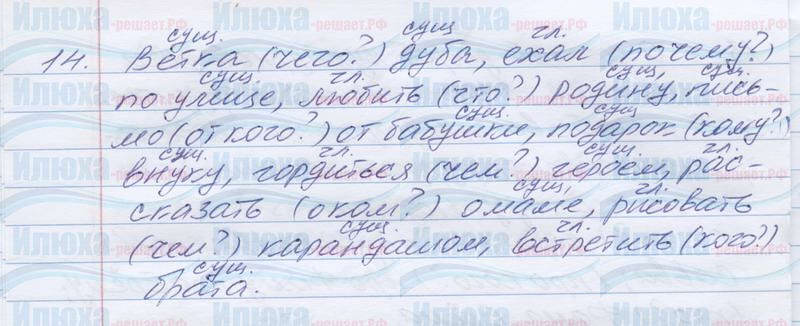 сущ. сущ гл.
14. Ветка (чего?) дуба, ехал (почему?)
сущ. гл. сущ. сущ.
по улице, любить (что?) родину, пись-
сущ. сущ
мо (от кого?) от бабушки, подарок (кому?)
сущ. гл. сущ. гл.
внуку, гордиться (чем?) героем, рас-
сущ, гл.
сказать (оком?) омаме, рисовать
сущ. гл.
(чем?) карандашом, встретить (кого?)
сущ.
брата.